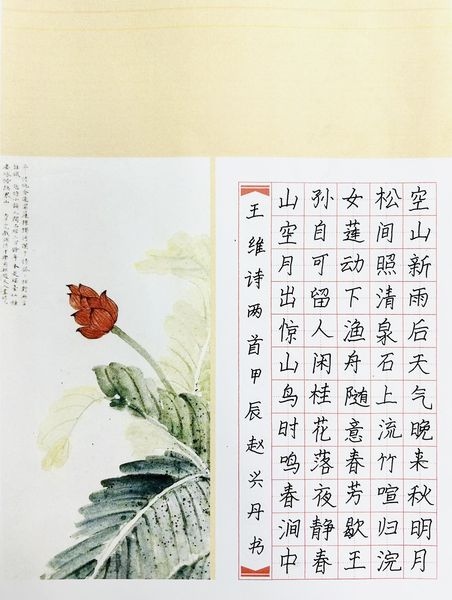 空山新雨后天气晚来秋明月
松间照清泉石上流竹喧归浣
女莲动下渔舟随意春芳歇王
孙自可留人闲桂花落夜静春
山空月出惊山鸟时鸣春涧中
王维诗两首甲辰赵兴丹书